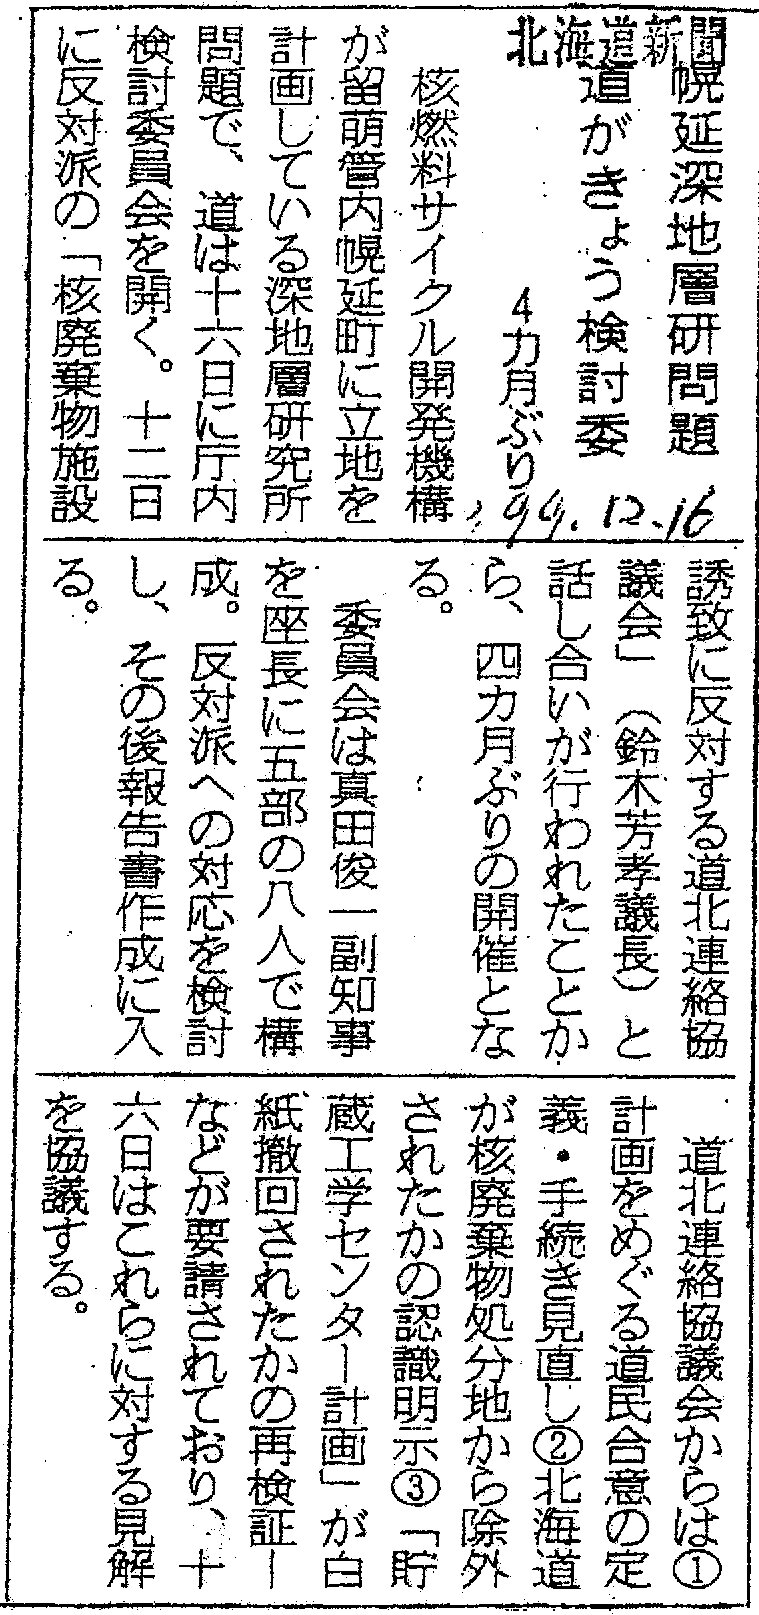 北海道新聞
幌延深地層研問題
道がきょう検討委
4カ月ぶり
'99.12.16
核燃料サイクル開発機構
が留萌管内幌延町に立地を
計画している深地層研究所
問題で、道は十六日に庁内
検討委員会を開く。十二日
に反対派の「核廃棄物施設
誘致に反対する道北連絡協
議会」（鈴木芳孝議長）と
話し合いが行われたことか
ら、四カ月ぶりの開催とな
る。
委員会は真田俊一副知事
を座長に五部の八人で構
成。反対派への対応を検討
し、その後報告書作成に入
る。
道北連絡協議会からは①
計画をめぐる道民合意の定
義・手続き見直し②北海道
が核廃棄物処分地から除外
されたかの認識明示③「貯
蔵工学センター計画」が白
紙撤回されたかの再検証ー
などが要請されており、十
六日はこれらに対する見解
を協議する。